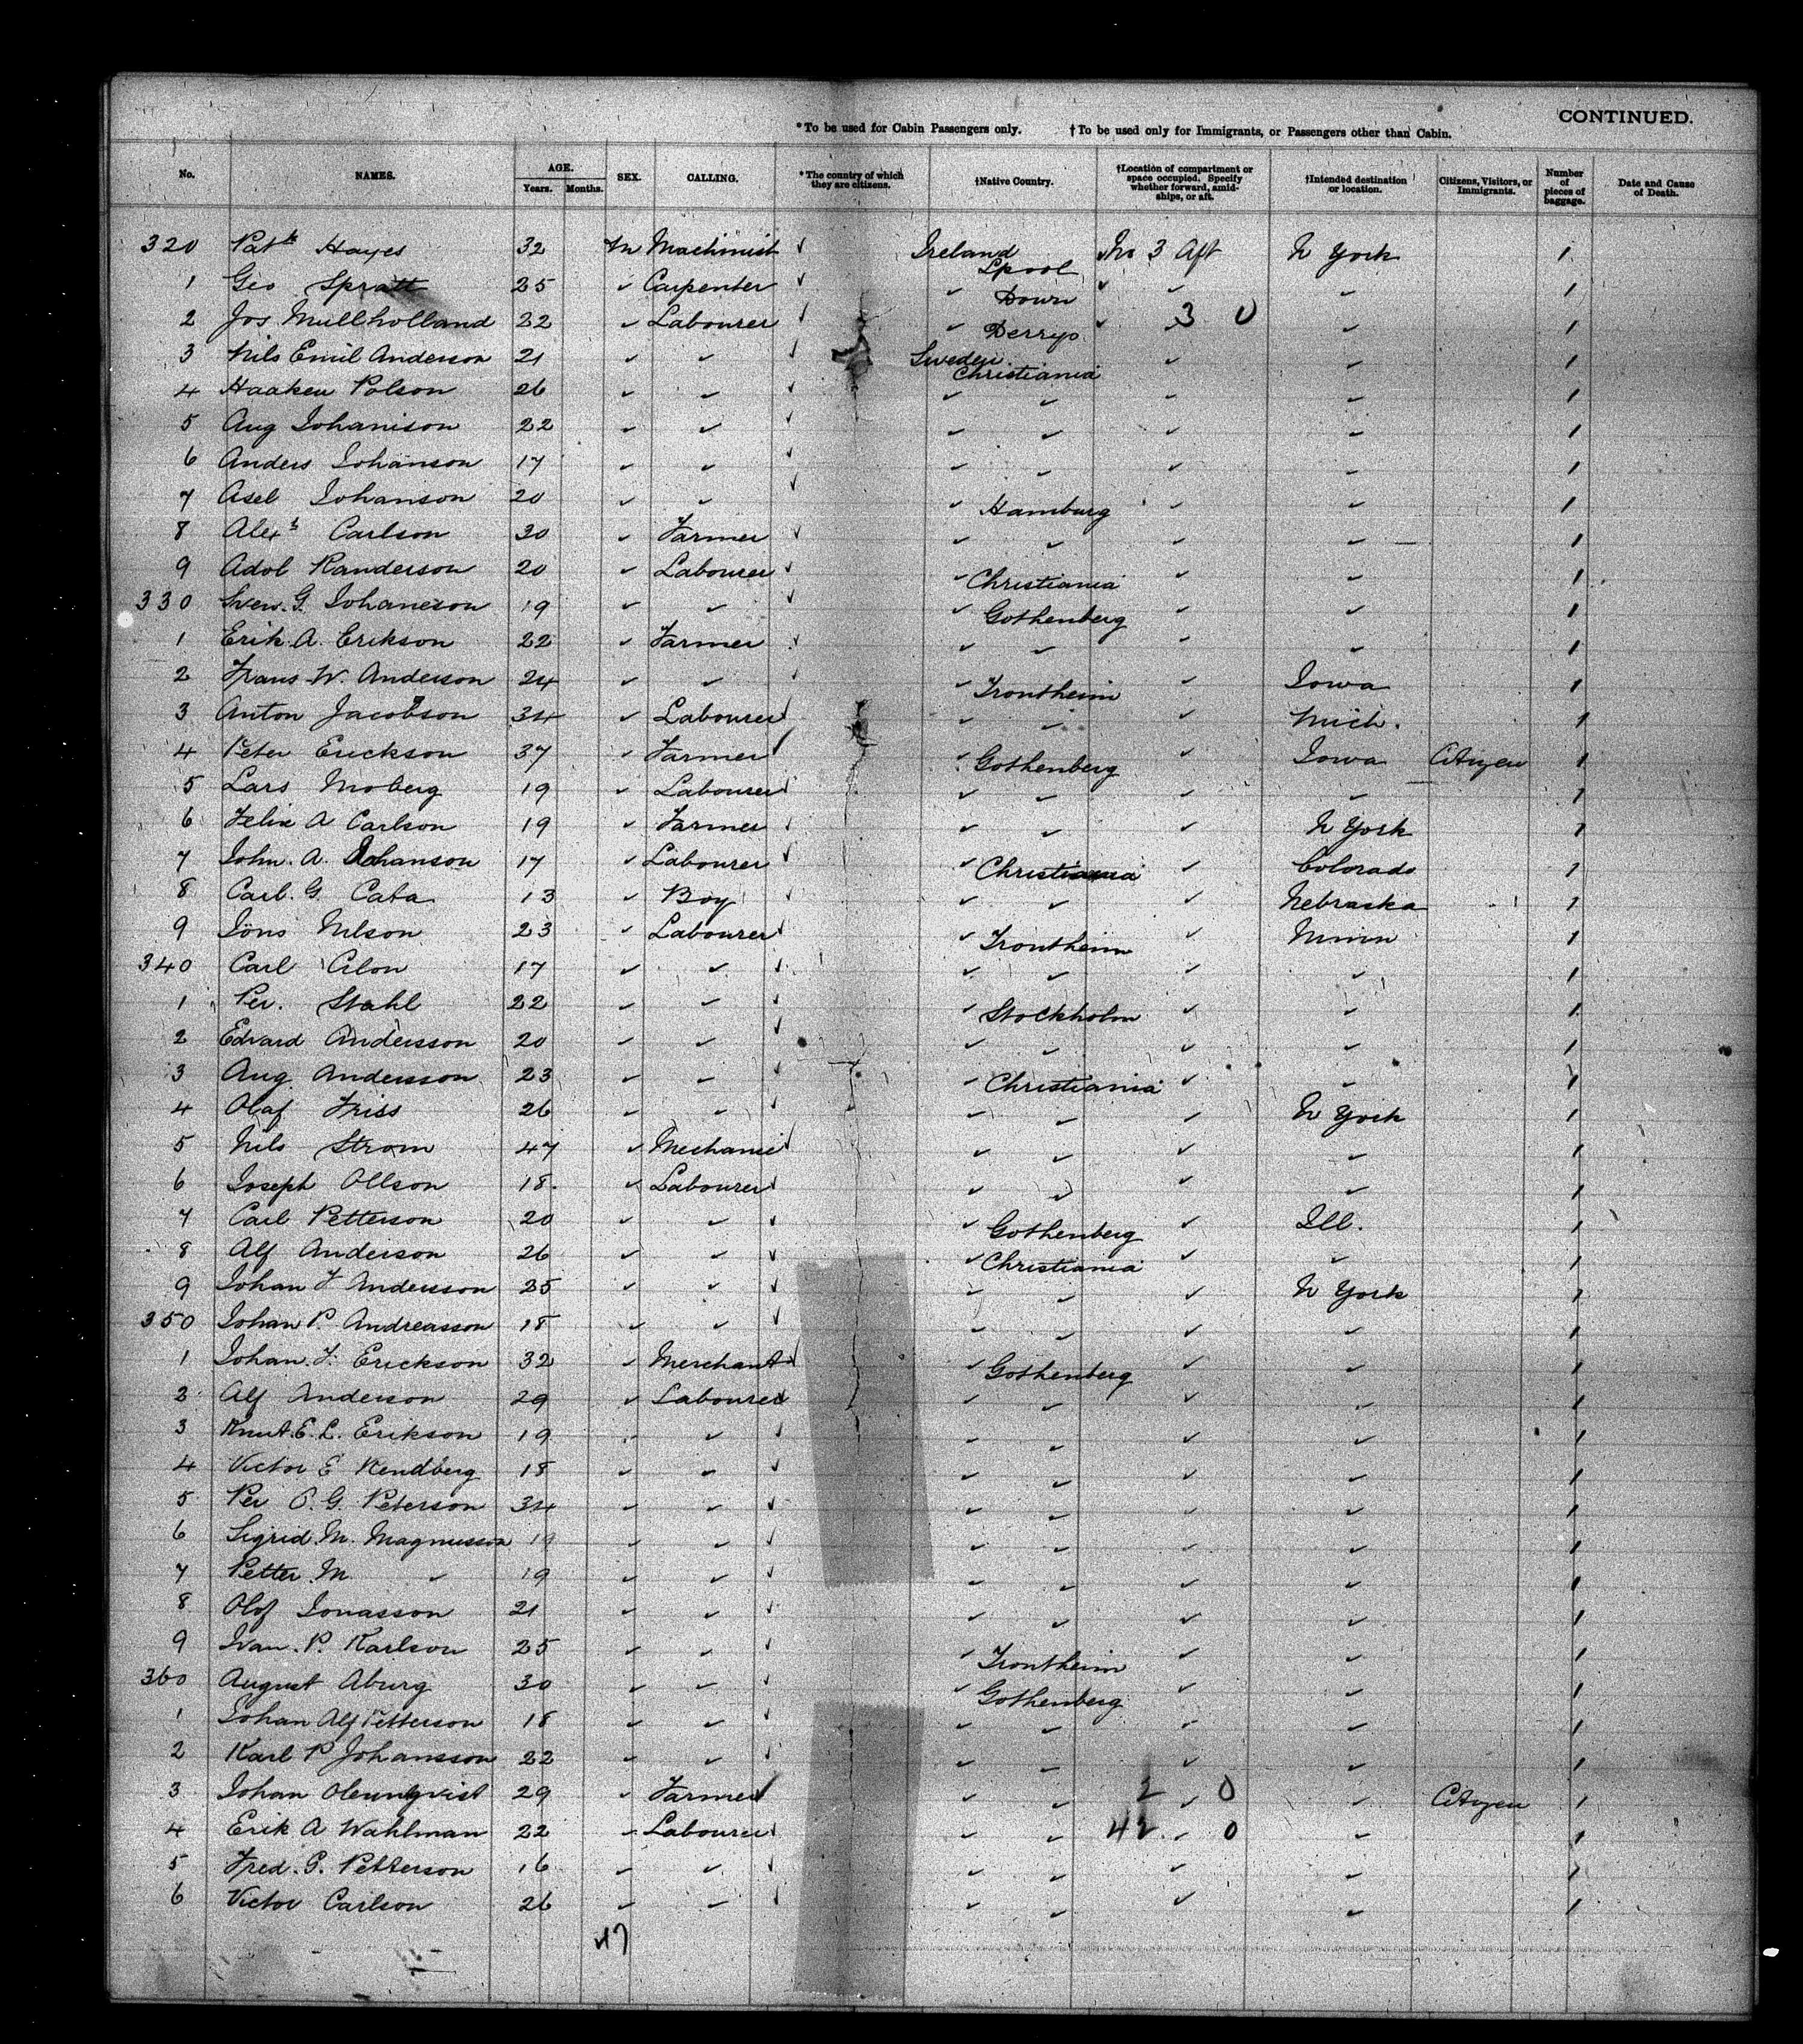 CONTINUED.
*To be used for Cabin Passengers only. †To be used only for Immigrants, or Passengers other than Cabin.
No. NAMES. AGE. Years. Months. SEX. CALLING. *The country of which they are citizens. †Native Country. †Location of compartment or space occupied. Specify whether forward, amidships, or aft. †Intended destination or location. Citizens, Visitors, or Immigrants. Number of pieces of baggage. Date and Cause of Death.
320 Patk Hayes 32 M Machinist ✓ Ireland Lpool No 3 Aft N York 1
1 Geo Spratt 25 ✓ Carpenter ✓ ✓ Down ✓ ✓ 1
2 Jos Mullholland 22 ✓ Labourer ✓ ✓ Derryo ✓ 3 0 ✓ 1
3 Nils Emil Anderson 21 ✓ ✓ ✓ Sweden Christiania ✓ ✓ 1
4 Haaken Polson 26 ✓ ✓ ✓ ✓ ✓ ✓ ✓ 1
5 Aug Johanison 22 ✓ ✓ ✓ ✓ ✓ ✓ ✓ 1
6 Anders Johanson 17 ✓ ✓ ✓ ✓ ✓ ✓ ✓ 1
7 Asel Johanson 20 ✓ ✓ ✓ ✓ Hamburg ✓ ✓ 1
8 Alexr Carlson 30 ✓ Farmer ✓ ✓ ✓ ✓ ✓ 1
9 Adol Randerson 20 ✓ Labourer ✓ ✓ Christiania ✓ ✓ 1
330 Swen. G. Johaneson 19 ✓ ✓ ✓ ✓ Gothenberg ✓ ✓ 1
1 Erik. A. Erikson 22 ✓ Farmer ✓ ✓ ✓ ✓ ✓ 1
2 Frans W. Anderson 24 ✓ ✓ ✓ ✓ Trontheim ✓ Iowa 1
3 Anton Jacobson 34 ✓ Labourer ✓ ✓ ✓ ✓ Mich. 1
4 Peter Erickson 37 ✓ Farmer ✓ ✓ Gothenberg ✓ Iowa Citizen 1
5 Lars Moberg 19 ✓ Labourer ✓ ✓ ✓ ✓ ✓ 1
6 Felix A Carlson 19 ✓ Farmer ✓ ✓ ✓ ✓ N York 1
7 John. A. Johanson 17 ✓ Labourer ✓ ✓ Christiania ✓ Colorado 1
8 Carl. G. Cata 13 ✓ Boy ✓ ✓ ✓ ✓ Nebraska 1
9 Jöns Nelson 23 ✓ Labourer ✓ ✓ Trontheim ✓ Minn 1
340 Carl 17 ✓ ✓ ✓ ✓ ✓ ✓ ✓ 1
1 Per. Stahl 22 ✓ ✓ ✓ ✓ Stockholm ✓ ✓ 1
2 Edvard Andersson 20 ✓ ✓ ✓ ✓ ✓ ✓ ✓ 1
3 Aug. Andersson 23 ✓ ✓ ✓ ✓ Christiania ✓ ✓ 1
4 Olaf Friss 26 ✓ ✓ ✓ ✓ ✓ ✓ N York 1
5 Nils Strom 47 ✓ Mechanic ✓ ✓ ✓ ✓ ✓ 1
6 Joseph Ollson 18 ✓ Labourer ✓ ✓ ✓ ✓ ✓ 1
7 Carl Petterson 20 ✓ ✓ ✓ ✓ Gothenberg ✓ Ill. 1
8 Alf Anderson 26 ✓ ✓ ✓ ✓ Christiania ✓ ✓ 1
9 Johan F Andersson 25 ✓ ✓ ✓ ✓ ✓ ✓ N York 1
350 Johan P. Andreasson 18 ✓ ✓ ✓ ✓ ✓ ✓ ✓ 1
1 Johan. F. Erickson 32 ✓ Merchant ✓ ✓ Gothenberg ✓ ✓ 1
2 Alf Anderson 29 ✓ Labourer ✓ ✓ ✓ ✓ 1
3 Knut. E. L. Erikson 19 ✓ ✓ ✓ ✓ ✓ ✓ ✓ 1
4 Victor E Rendberg 18 ✓ ✓ ✓ ✓ ✓ ✓ ✓ 1
5 Per P. G. Peterson 34 ✓ ✓ ✓ ✓ ✓ ✓ ✓ 1
6 Sigrid. M. Magnusson 19 ✓ ✓ ✓ ✓ ✓ ✓ ✓ 1
7 Petter. M ✓ 19 ✓ ✓ ✓ ✓ ✓ ✓ ✓ 1
8 Olof Jonasson 21 ✓ ✓ ✓ ✓ ✓ ✓ ✓ 1
9 Ivan. P. Karlson 25 ✓ ✓ ✓ ✓ Trontheim ✓ ✓ 1
360 August Aburg 30 ✓ ✓ ✓ ✓ Gothenberg ✓ ✓ 1
1 Johan Alf Petterson 18 ✓ ✓ ✓ ✓ ✓ ✓ ✓ 1
2 Karl P Johansson 22 ✓ ✓ ✓ ✓ ✓ ✓ ✓ 1
3 Johan 29 ✓ Farmer ✓ ✓ ✓ 2 ✓ 0 ✓ Citizen 1
4 Erik A Wahlman 22 ✓ Labourer ✓ ✓ ✓ 42 ✓ 0 ✓ 1
5 Fred. P. Petterson 16 ✓ ✓ ✓ ✓ ✓ ✓ ✓ 1
6 Victor Carlson 26 ✓ ✓ ✓ ✓ ✓ ✓ ✓ 1
47